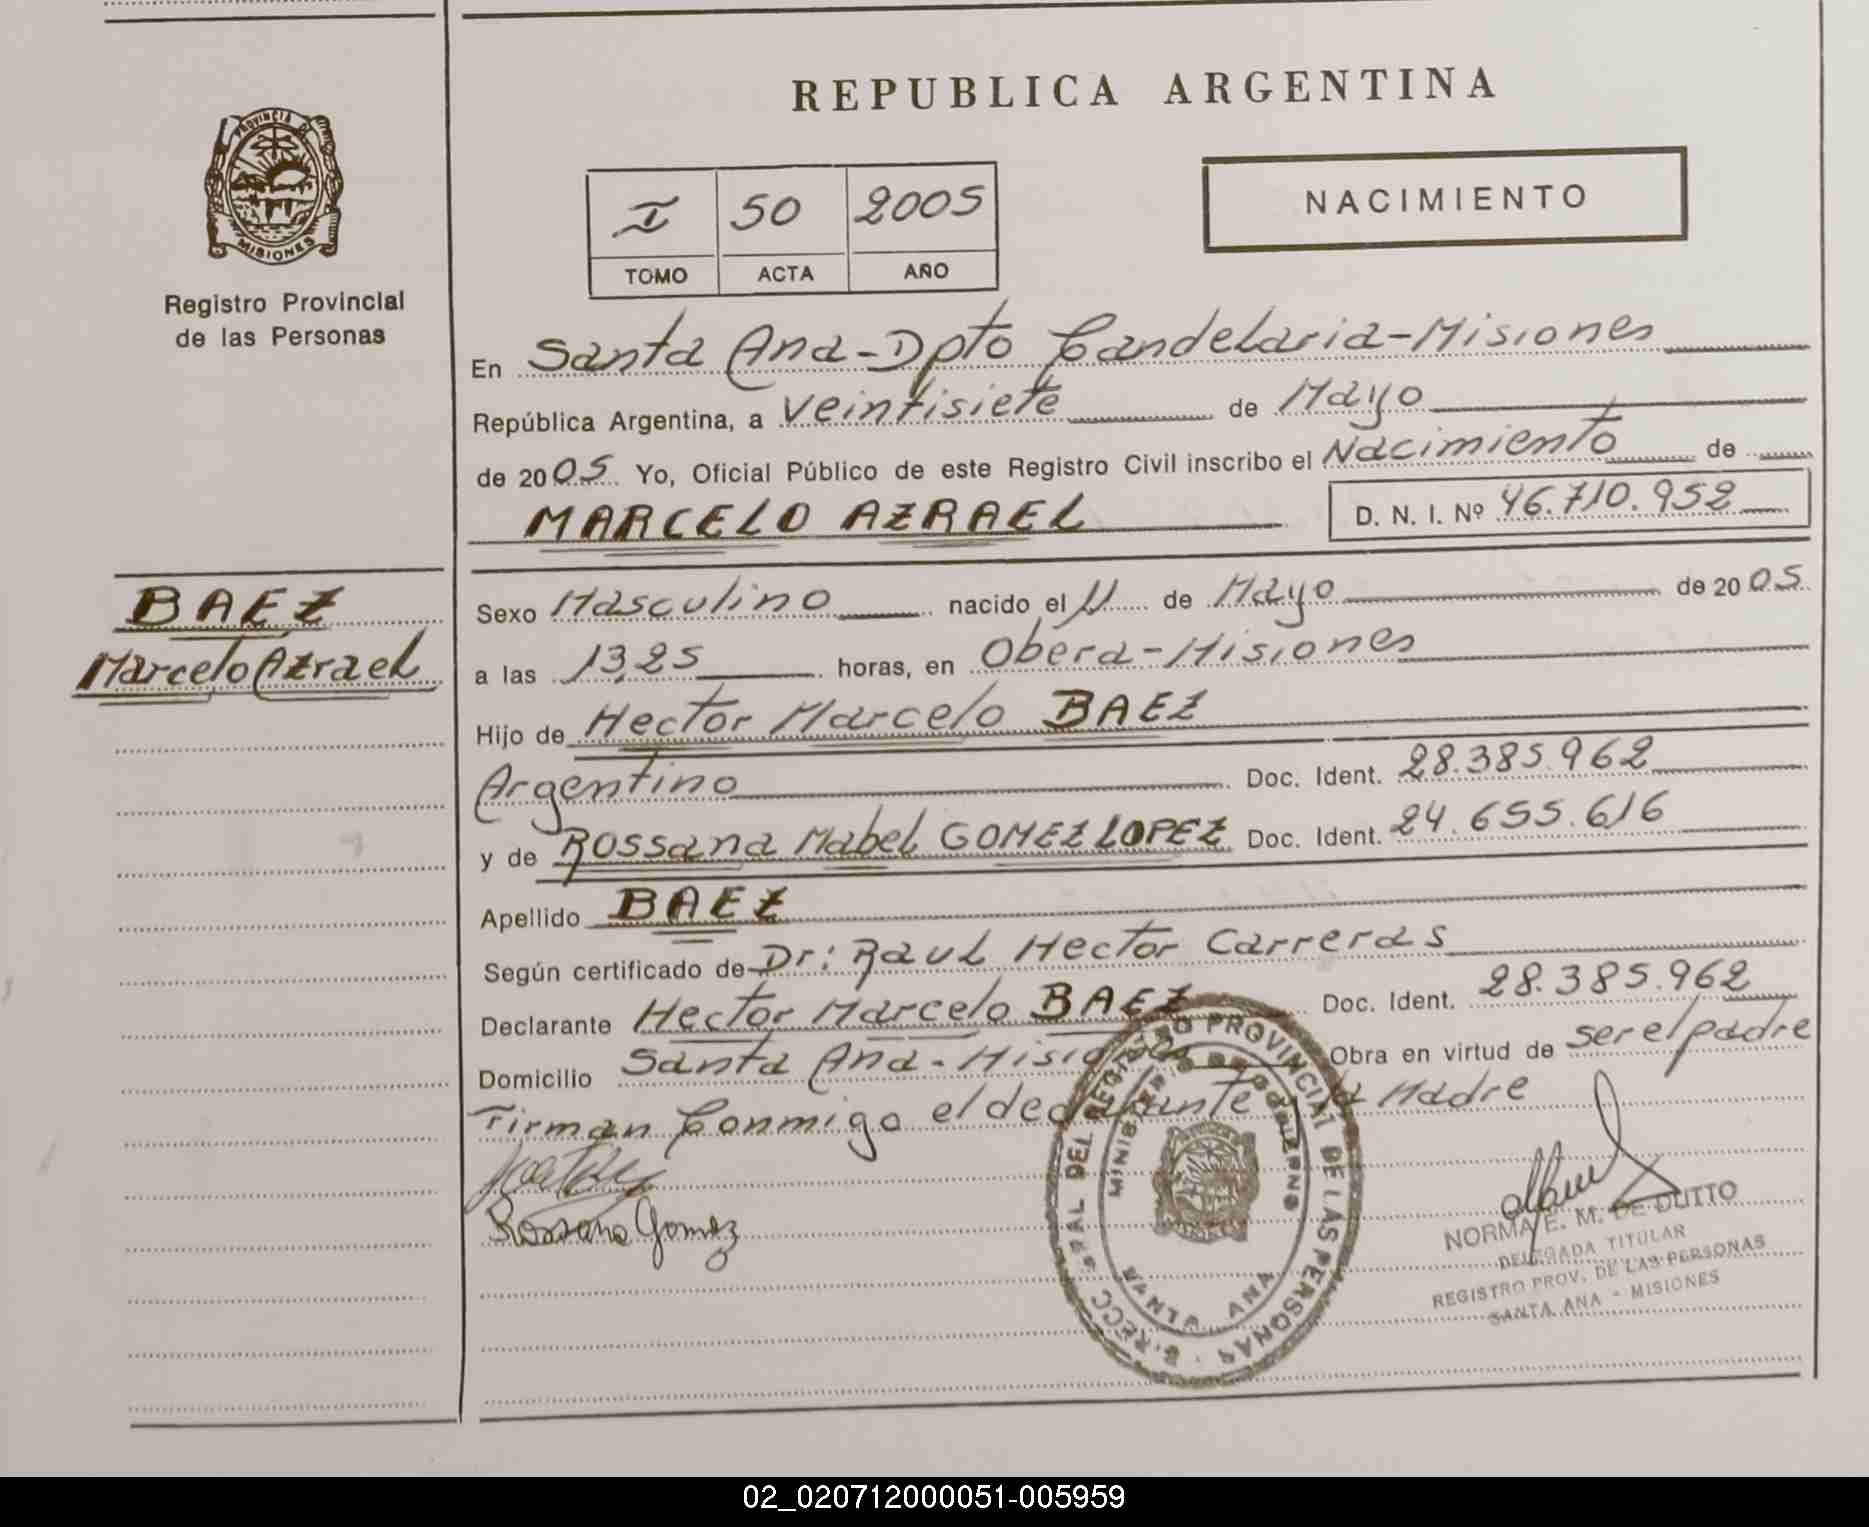 PROVINCIA DE
MISIONES
Registro Provincial
de las Personas
BAEZ
Marcelo Azrael
REPUBLICA ARGENTINA
I 50 2005
TOMO ACTA AÑO
NACIMIENTO
En Santa Ana-Dpto Candelaria-Misiones
República Argentina, a veintisiete de Mayo
de 2005 Yo, Oficial Público de este Registro Civil inscribo el Nacimiento de
MARCELO AZRAEL D. N. I. Nº 46.710.952
Sexo Masculino nacido el 11 de Mayo de 2005
a las 13,25 horas, en Obera-Misiones
Hijo de Hector Marcelo BAEZ
Argentino Doc. Ident. 28.385.962
y de Rossana Mabel GOMEZ LOPEZ Doc. Ident. 24.655.616
Apellido BAEZ
Según certificado de Dr: Raul Hector Carreras
Declarante Hector Marcelo BAEZ Doc. Ident. 28.385.962
Domicilio Santa Ana-Misiones Obra en virtud de ser el padre
Firman Conmigo el declarante la Madre
Rossana Gomez
REGISTRO PROVINCIAL DE LAS PERSONAS
MINISTERIO DE GOBIERNO
SANTA ANA
NORMA E. M. DE DUTTO
DELEGADA TITULAR
REGISTRO PROV. DE LAS PERSONAS
SANTA ANA - MISIONES
02_020712000051-005959